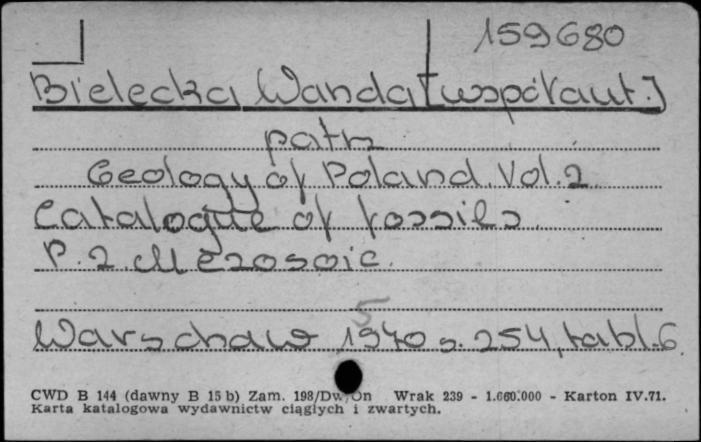 159680
Bielecka Wanda [współaut.]
patrz
Geology of Poland. Vol. 2.
Catalogue of fossils.
P. 2. Mezosoic.
5
Warschaw 1970 s. 254, tabl. 6
CWD B 144 (dawny B 15 b) Zam. 198/Dw/On Wrak 239 - 1.660.000 - Karton IV.71.
Karta katalogowa wydawnictw ciągłych i zwartych.